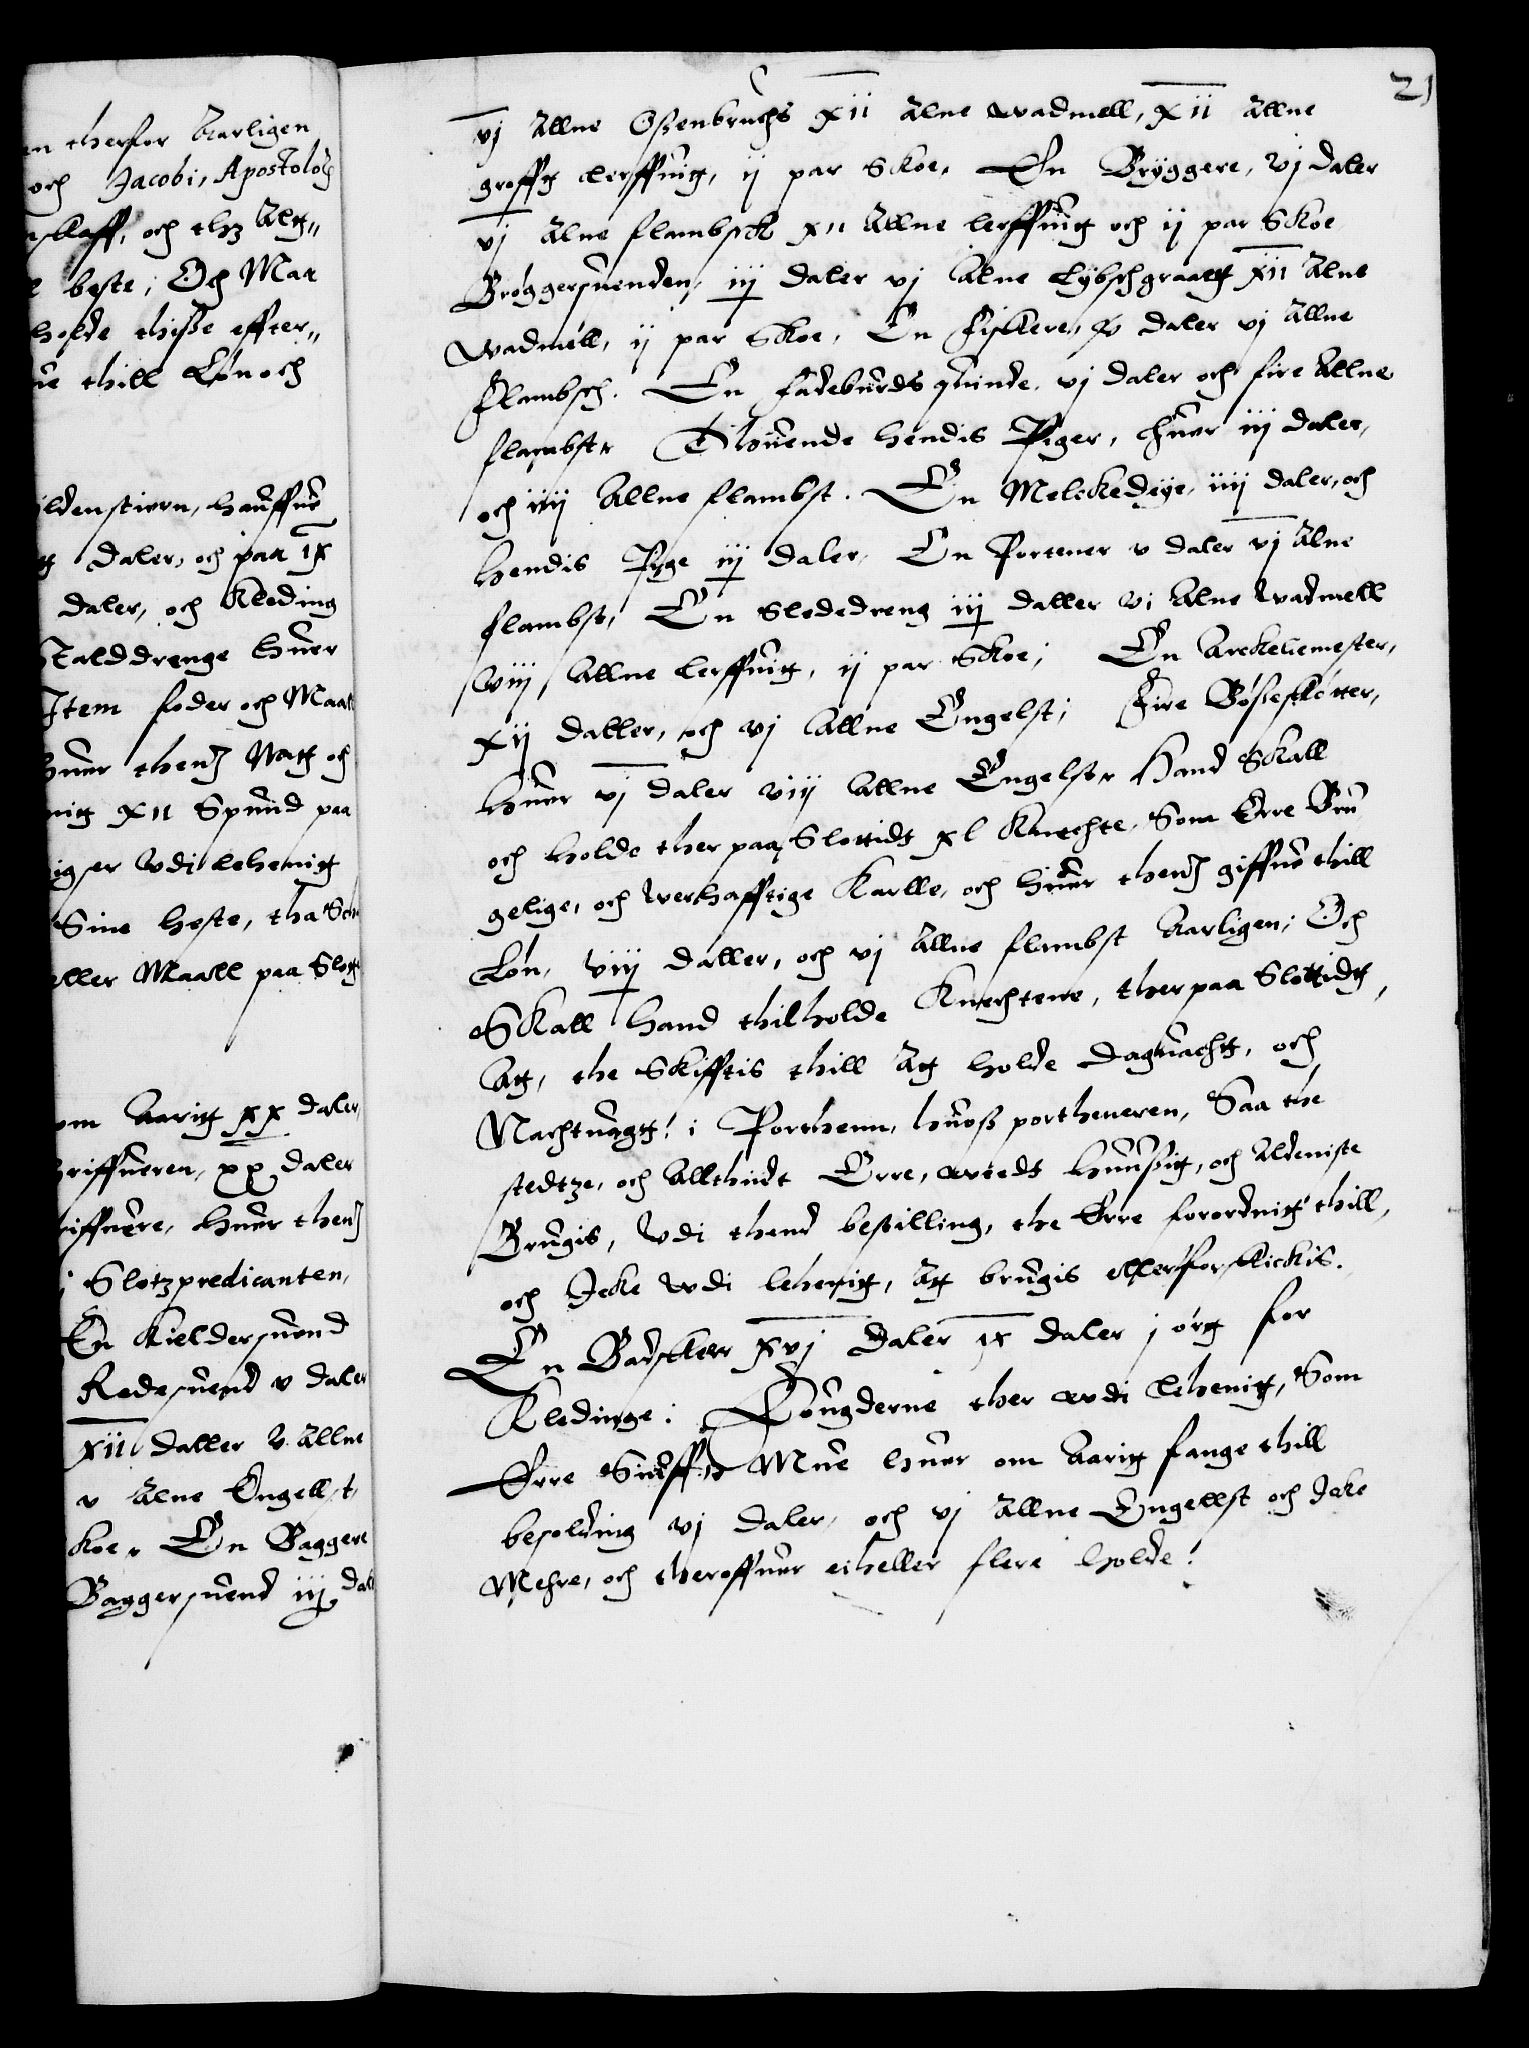 en therfor Aarligen
och Jacobi, Apostolorum
skaff, och thz Altt,,
l beste; Och Maa
holde thisse effter,,
ne thill Løn och
ldenstiern, hauffue
tt daler, och paa ix
daler, och Kleding
Stalddrenge huer
Item foder och Maall
huer thend Natt och
nitt xii Spund paa
iger vdi lehenitt
Sine heste, tha
eller Maall paa Slott
om Aaritt xx daler,
hriffueren, xx daler
riffuere, huer thend
i Slotzpredicanten,
En Kieldersuend
Redesuend v daler
xii daller v Allne
v Alne Engellst,
koe, En Baggere
Baggersuend iij dal
21
vj Allne Ossenbruchs xii Alne wadmell, xii Allne
grofftt lerffuitt, ij par Skoe, En Bryggere, vj daler
vj Alne flambsck xii Allne lerffuitt och ij par Skoe
Brøggersuenden, iij daler vj Alne Lybschgraatt xii Alne
wadmell, ij par Skoe, En fiskere, v daler vj Allne
flambsch. En fadeburds quinde, vj daler och fire Allne
flambst, Thouende hendis Piger, huer iij daler,
och iiij Allne flambst. En Melckedeye, iiij daler, och
hendis Pige iij daler, En Portener v daler vj Alne
flambst, En Slodedreng iij daller vi Alne Wadmell
viij Allne lerffuitt, ij par Skoe; En Arckeliemester,
xij daller, och vj Allne Engelst; Fire Bøsseskøtter,
huer vj daler viij Allne Engelst, Hand Skall
och holde ther paa Slottidt xl Knechte, Som Erre Bru
gelige, och werhafftige Karlle, och huer thend giffue thill
Løn, viij daller, och vj Allne flambst Aarligen; Och
Skall hand thilholde Knechtene, ther paa Slottidtt,
Att, the Skifftis thill Att holde Daguachtt, och
Nachtuagtt! i Porthenn, huoss portheneren, Saa the
stedtze, och Allthidt Erre, ærtedt huussitt, och Aldeniste
Brugis, Vdi thend bestilling, the Erre forordnitt thill,
och Icke vdi lehenitt, Att brugis eller forskickis.
En Badskerr xvj Daler ix daler j ørtt for
Kledinge; Fougderne ther wdi lehenitt, Som
Erre Mue huer om Aaritt fange thill
besolding vj daler, och vj Allne Engellst och Icke
Mehre, och theroffuer eiheller flere holde!